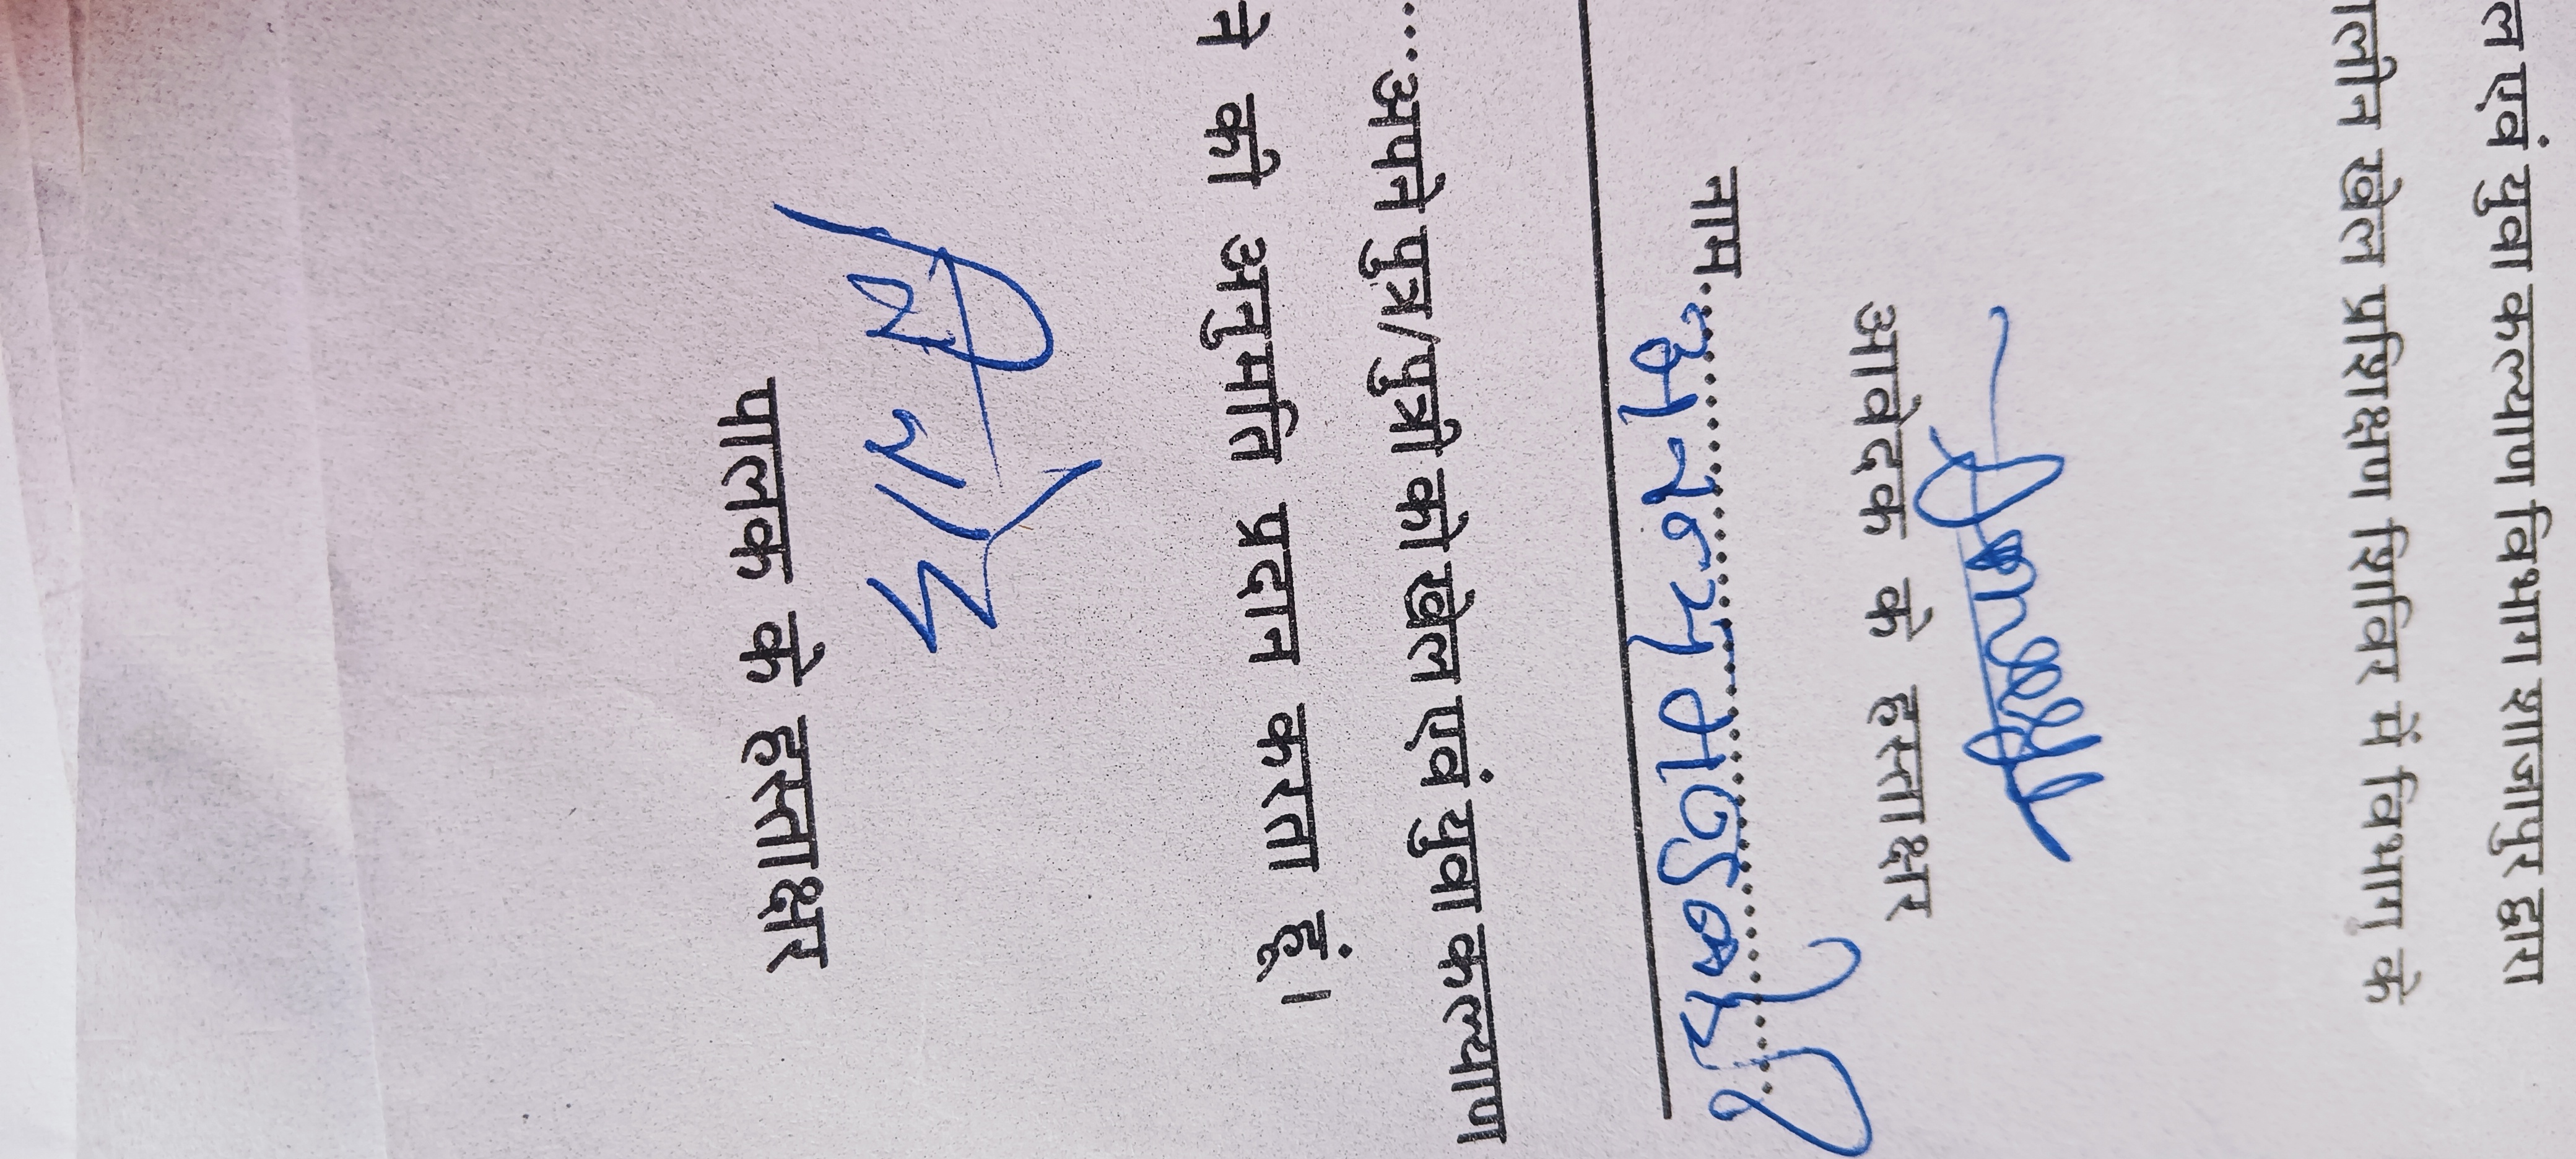 ल एवं युवा कल्याण विभाग शाजापुर द्वारा
ालीन खेल प्रशिक्षण शिविर में विभाग के
आवेदक के हस्ताक्षर
नाम
....अपने पुत्र/पुत्री को खेल एवं युवा कल्याण
ने की अनुमति प्रदान करता हूं।
पालक के हस्ताक्षर